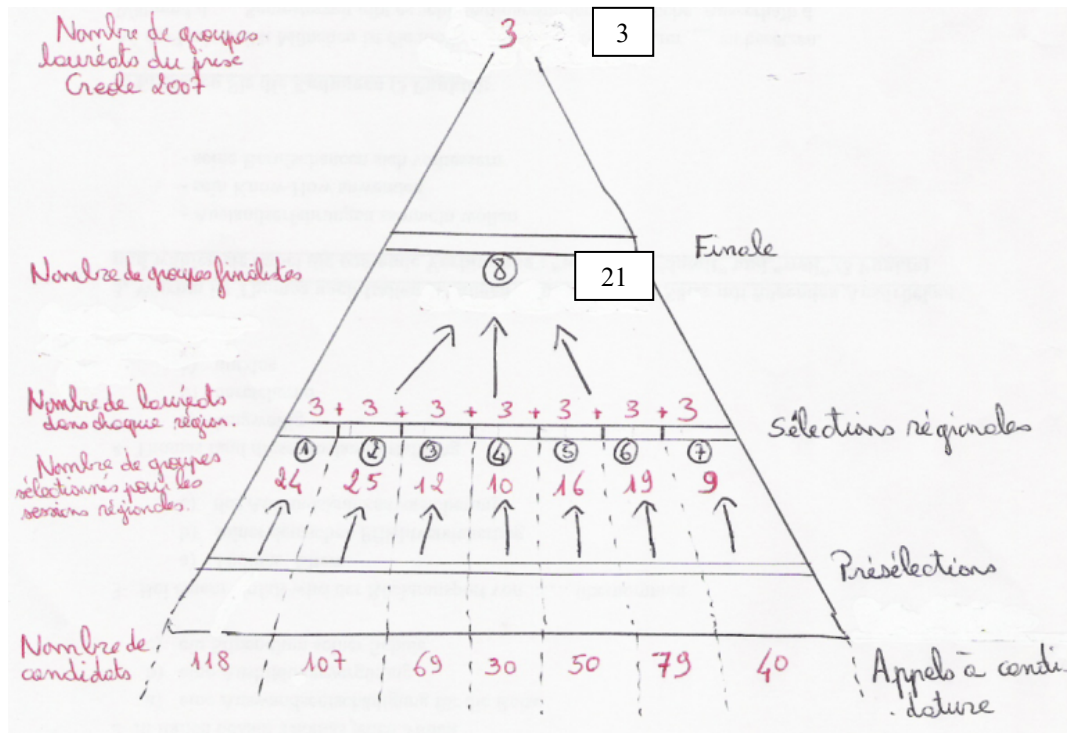 Nombre de groupes
lauréats du prix
Crede 2007
3
3
Finale
Nombre de groupes finalistes
8
21
Nombre de lauréats
dans chaque région.
3 + 3 + 3 + 3 + 3 + 3 + 3
Sélections régionales
1 2 3 4 5 6 7
Nombre de groupes
sélectionnés pour les
sessions régionales.
24 25 12 10 16 19 9
Présélections
Nombre de
candidats
118 107 69 30 50 79 40
Appels à candi
dature